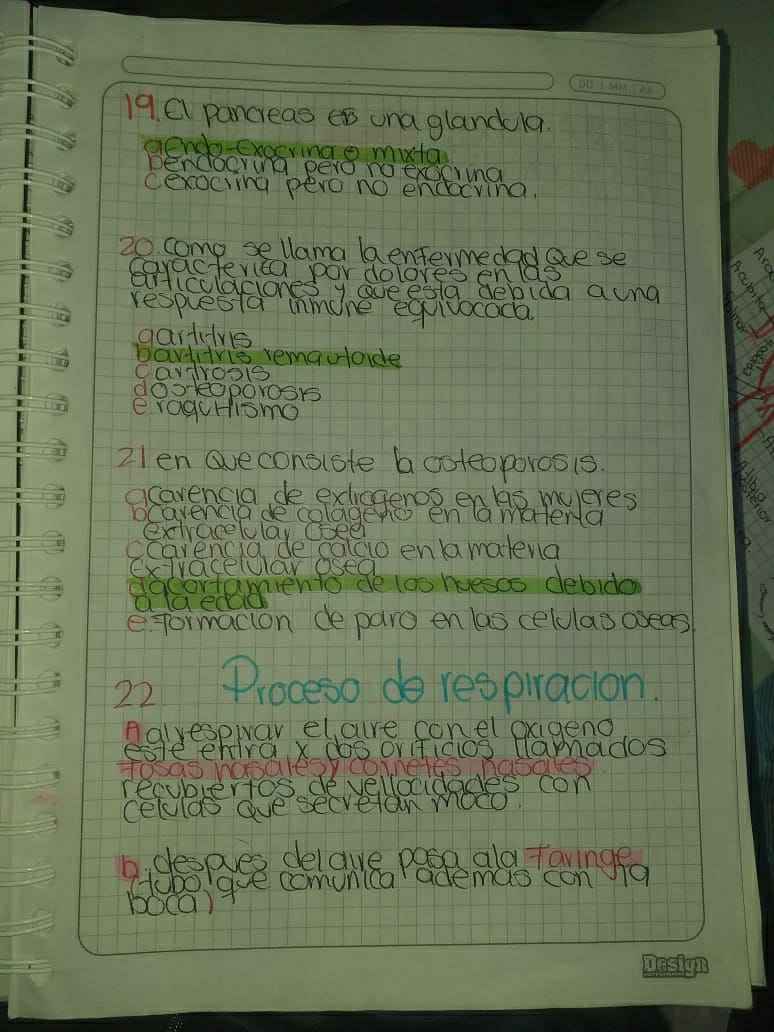 DD | MM | AA
19. El pancreas es una glandula.
a endo-exocrina o mixta
b endocrina pero no exocrina
c exocrina pero no endocrina.
20. como se llama la enfermedad que se
caracteriza por dolores en las
articulaciones y que esta debida a una
respuesta inmune equivocada.
a artitris
b artitris remautoide
c artrosis
d osteoporosis
e raquitismo
21 en que consiste la osteoporosis.
a carencia de extrogenos en las mujeres
b carencia de colageno en la materia
extracelular osea
c carencia de calcio en la materia
extracelular osea
d acortamiento de los huesos debido
a la edad
e. formacion de paro en las celulas oseas.
22. Proceso de respiracion.
A al respirar el aire con el oxigeno
este entra x dos orificios llamados
fosas nasales y cornetes nasales.
recubiertos de vellocidades con
celulas que secretan moco.
b. despues del aire pasa ala faringe
(tubo, que comunica ademas con la
boca)
Design
Arc
Acubita